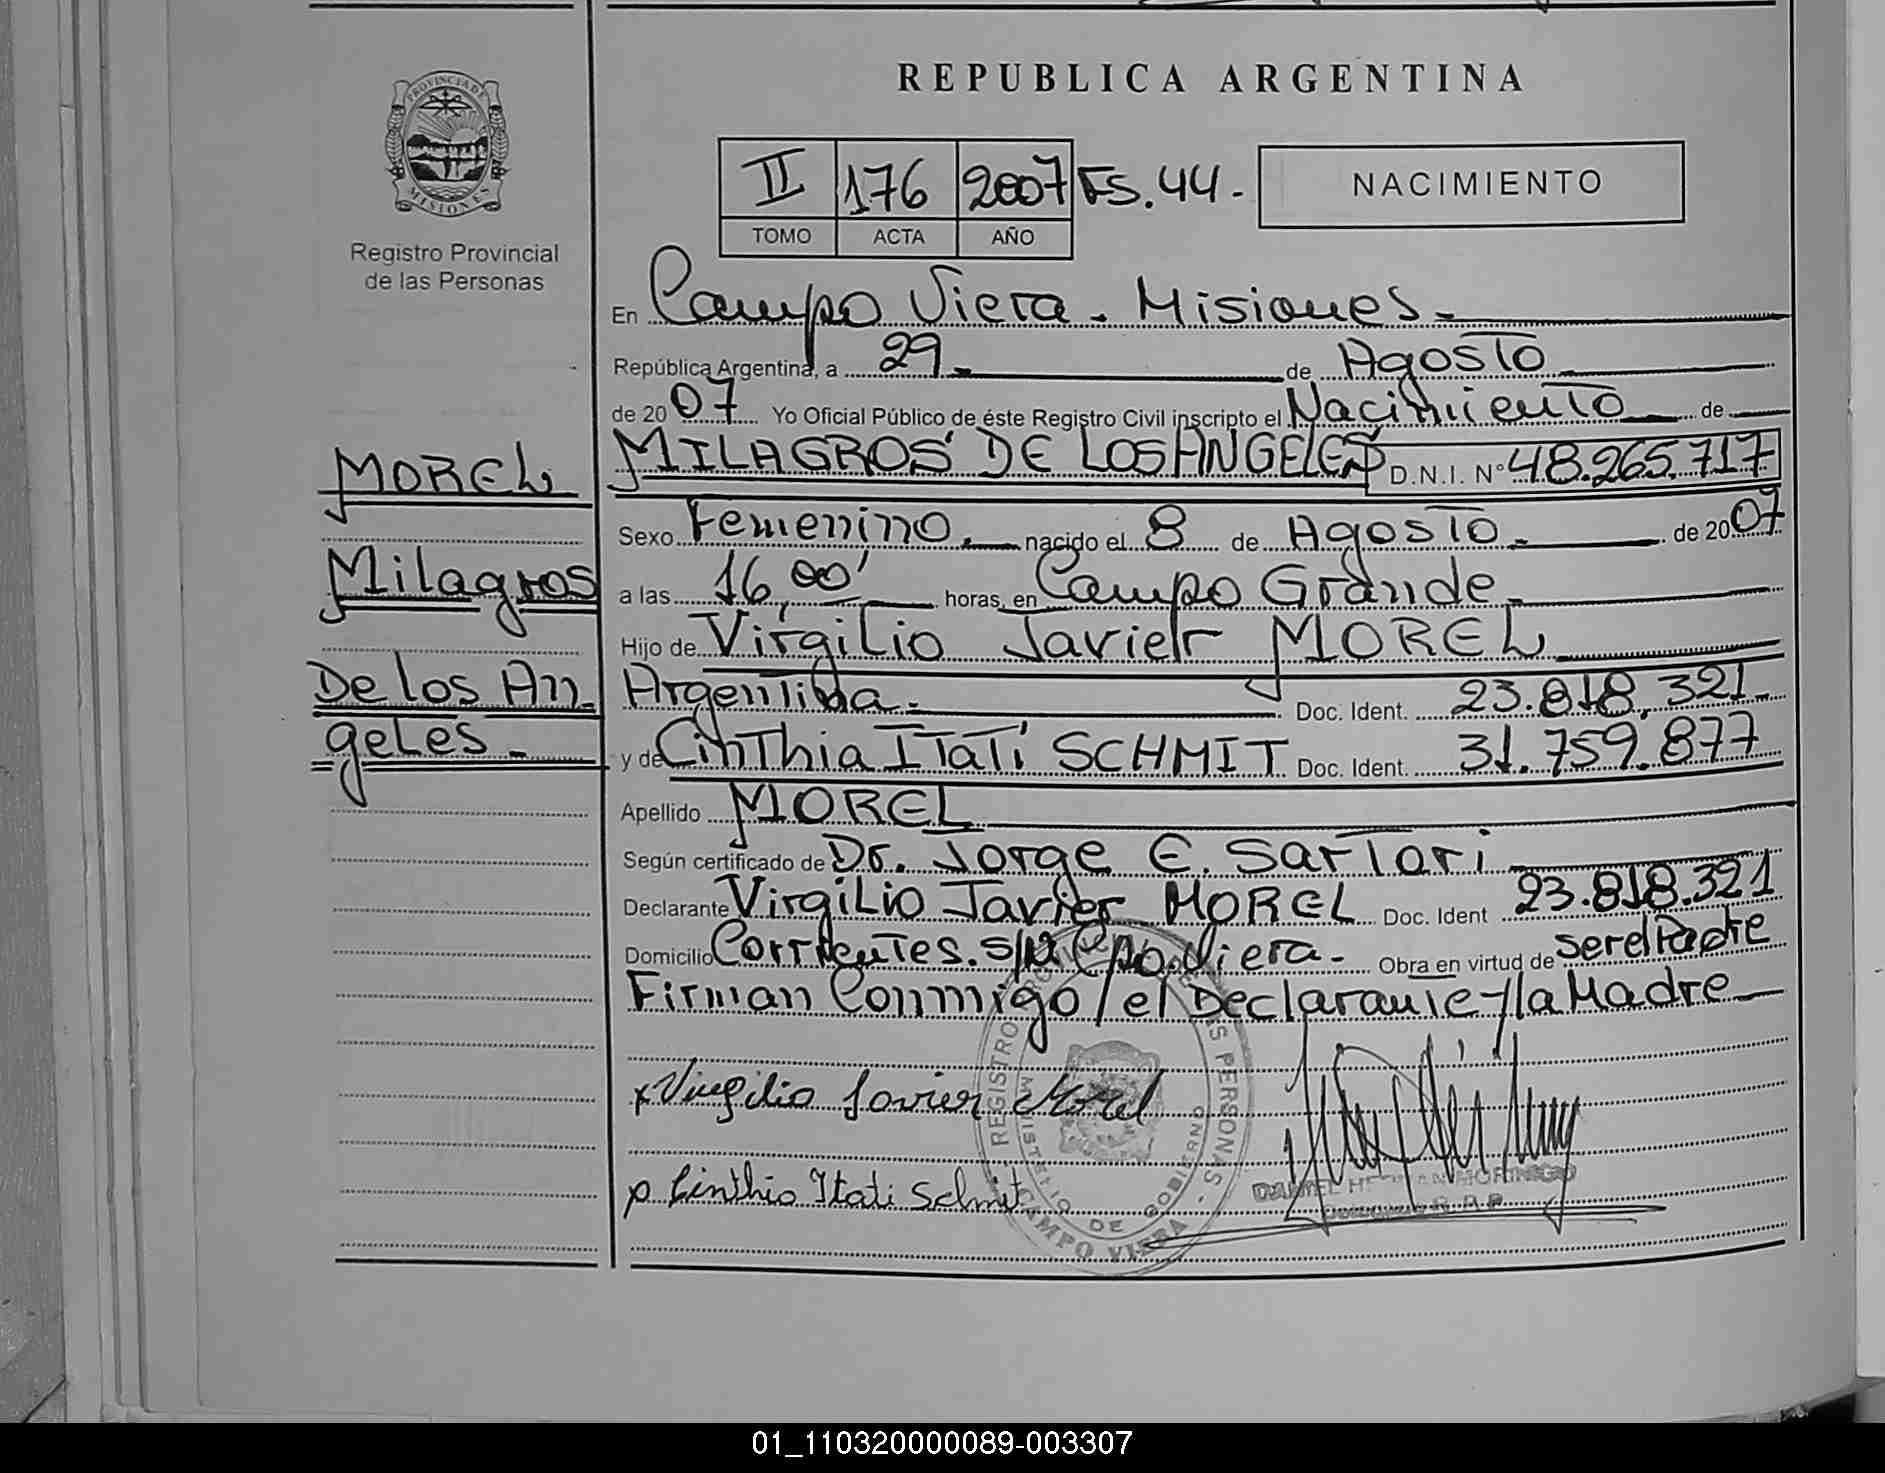 REPUBLICA ARGENTINA
PROVINCIA DE MISIONES
Registro Provincial
de las Personas
II 176 2007 Fs. 44.-
TOMO ACTA AÑO
NACIMIENTO
En Campo Viera. Misiones.-
República Argentina, a 29.- de Agosto
de 2007 Yo Oficial Público de éste Registro Civil inscripto el Nacimiento de
MILAGROS DE LOS ANGELES D.N.I. N° 48.265.717
Sexo Femenino.- nacido el 8 de Agosto.- de 2007
a las 16,00' horas, en Campo Grande.-
Hijo de Virgilio Javier MOREL
Argentina.- Doc. Ident. 23.818.321
y de Cinthia Itatí SCHMIT Doc. Ident. 31.759.877
Apellido MOREL
Según certificado de Dr. Jorge E. Sartori
Declarante Virgilio Javier MOREL Doc. Ident 23.818.321
Domicilio Corrientes. s/n Cpo. Viera.- Obra en virtud de ser el Padre
Firman Conmigo/el Declarante y la Madre
MOREL
Milagros
De los An
geles.-
x Virgilio Javier Morel
p. Cinthia Itati Schmit
REGISTRO PROVINCIAL DE LAS PERSONAS
MINISTERIO DE GOBIERNO
CAMPO VIERA
DANIEL HERNAN MORINIGO
Delegado R. P. P.
01_110320000089-003307